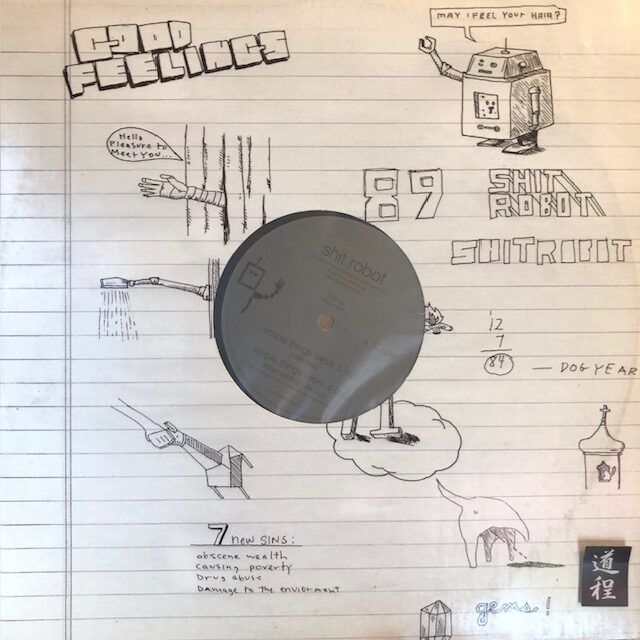 GOOD
FEELINGS
MAY I FEEL YOUR HAIR?
Hello
Pleasure to
Meet you...
89
SHIT
ROBOT
SHITROBOT
shit robot
simple things (work it out)
simple things (work it out)
12
7
84
— DOG YEAR
7 new SINS:
obscene wealth
causing poverty
Drug abuse
Damage to the enviorment
道
程
gems!